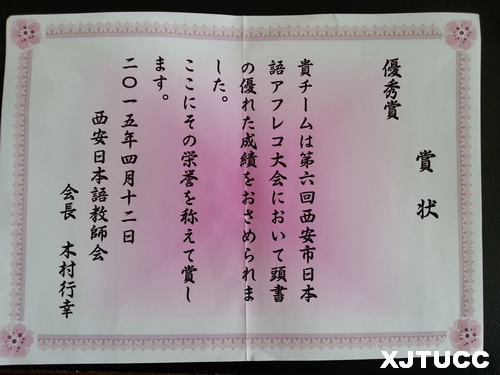 賞状
優秀賞
貴チームは第六回西安市日本
語アフレコ大会において頭書
の優れた成績をおさめられま
した。
ここにその栄誉を称えて賞し
ます。
二〇一五年四月十二日
西安日本語教師会
会長 木村行幸
XJTUCC